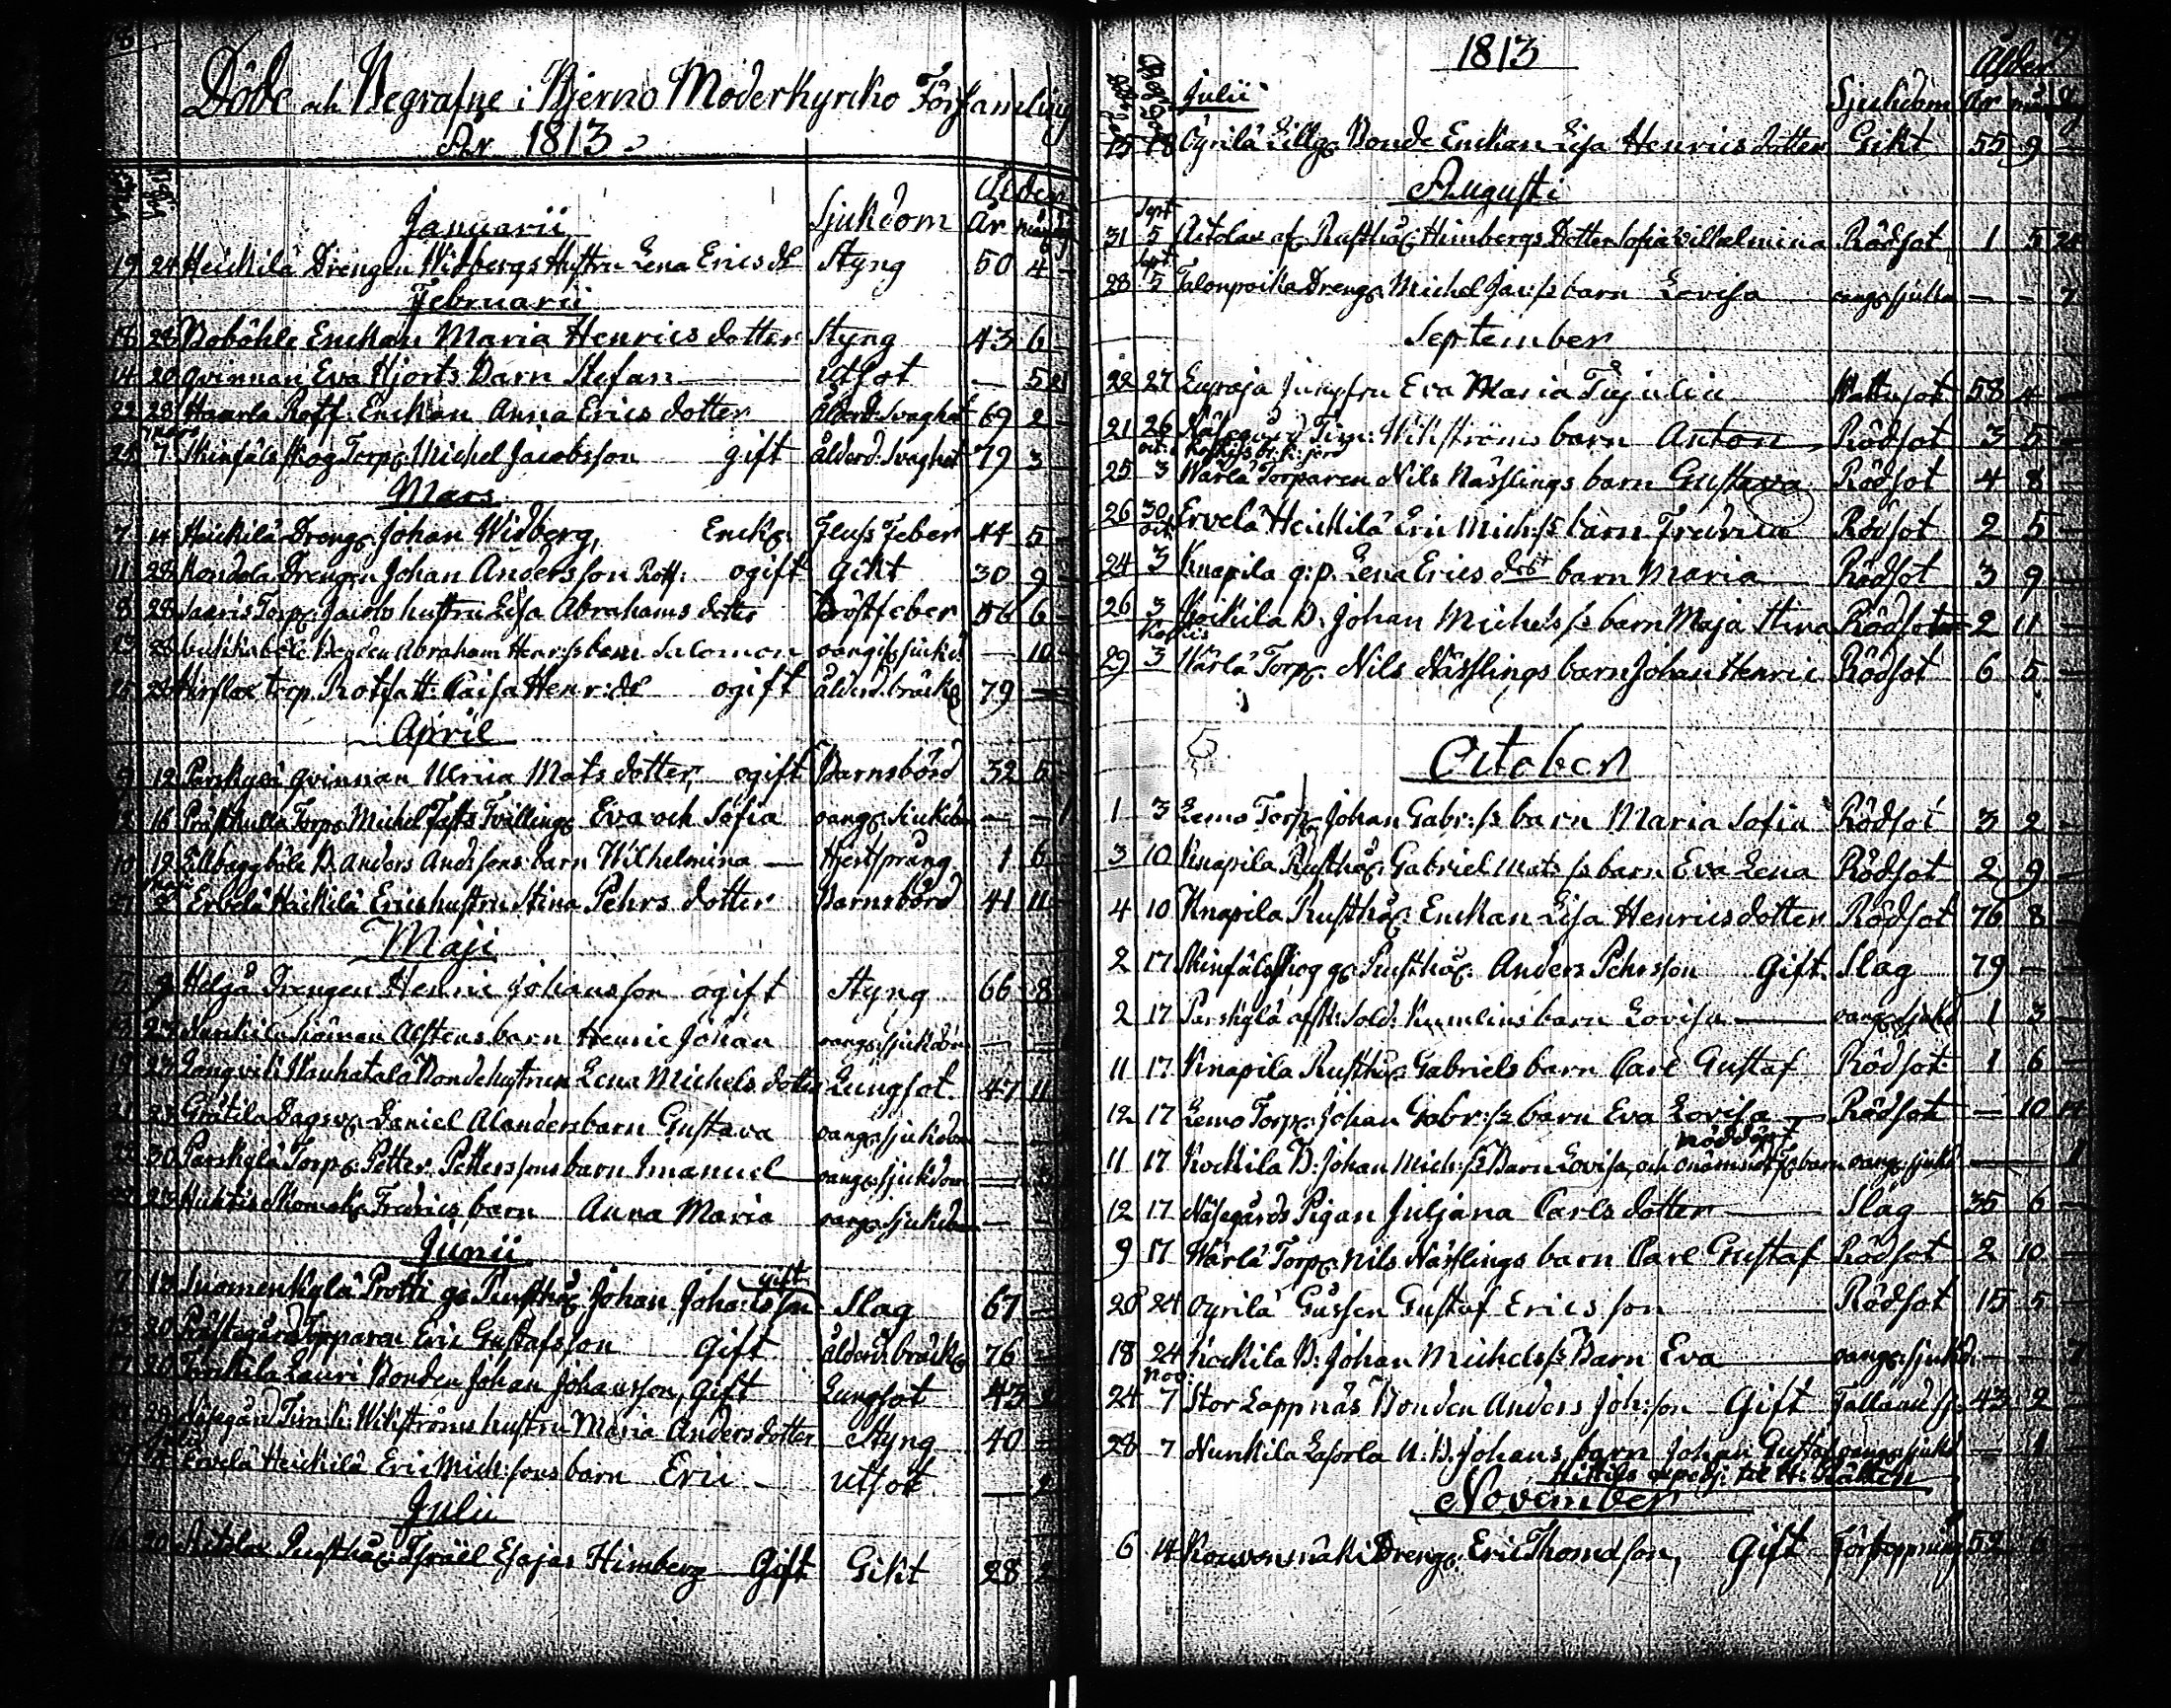 Döde och Begrafne i Bjerno Moderkyrko Församling
År 1813.
Ålder
Januarii Sjukdom År
19 24 Heickilä Drengen Widbergs Hustru Lena Erics dr Styng 50 4 -
Februarii
18 28 Boböhle Enckan Maria Henrics dotter Styng 43 6
14 20 qvinnan Eva Hjorts Barn Stefan — Utsot — 5 21
22 28 Haarla Rotf. Enckan Anna Erics dotter Ålderd: Svaghet 69 2 -
Mars
7 Skinfäls Skog Torp: Michel Jacobsson gift Ålderd: Svaghet 79 3 -
Mars
7 14 Heickilä Dreng: Johan Widberg, Enck: Fluss Feber 44 5 -
11 28 Kondola Drengen Johan Andersson Rotf: ogift Gikt 30 9 -
8 28 Saaris Torp: Jacobs hustru Lisa Abrahams dotter Bröstfeber 56 6 -
Abraham Henr:ss barn Salomon oangif: sjukd: — 10 -
25 28 torp. Rotfatt: Caisa Henr: dr ogift Ålderd. bräck: 79 —
April
9 12 Perskylä qvinnan Ulrica Mats dotter, ogift Barnsbörd 32 5 -
12 16 Prästkulla Torp: Michel Tvilling: Eva och Sofia oang: Siukdom — — 1
10 19 Lillbaggböle B. Anders Andssons barn Wilhelmina — Hjertsprång 1 6 -
Maji
27 2 Ervelä Heickilä Erics hustru Stina Pehrs dotter Barnsbörd 41 11 -
Maji
9 Helgå Drengen Henric Johansson ogift Styng 66 8
23 barn Henric Johan oang: sjukdom — —
19 23 Bonde hustrun Lena Michels dotter Lungsot. 47 11
21 23 Dagsv: Daniel Alanders barn Gustava oang: sjukdom — —
22 30 Perskylä Torp: Petter Petterssons barn Imanuel oang: sjukdom —
23 Fredrics barn Anna Maria oang: sjukdom — —
Junii
gift
7 13 Suomenkylä Protti ga Rusthål: Johan Johansson Slag 67 —
20 Prästegård Torparen Eric Gustafsson Gift Ålderd. bräck: 76 —
20 Lauri Bonden Johan Johansson, gift Lungsot 43
Näsegård Tim: Wikströms hustru Maria Anders dotter Styng 40 —
Julii
Ervelä Heickilä Eric Mich:sons barn Eric — Utsot — 2
Julii
20 Aitolax Rusthål: Israel Esajas Himberg Gift Gikt 28 2
1813
Ålder
Julii Sjukdom År
15 18 Oyrilä Lillg: Bonde Enckan Lisa Henrics dotter Gikt 55 9 —
Augusti
Sept
31 5 Aitolax af: Rusthål: Himbergs Dotter Sofia Vilhelmina Rödsot 1 5 24
Sept
28 5 Talonpoika Dreng: Michel Jac:ss barn Lovisa oang: sjukd — - 7
September
22 27 Jungfru Eva Maria Wattusot 58 4 —
21 26 Näsegård Tim: Wikströms barn Anton Rödsot 3 5 —
oct:
25 3 Wärlä Torparen Nils Nässlings barn Gustava Rödsot 4 8 —
26 30 Ervelä Heickilä Eric Mich:ss barn Fredrica Rödsot 2 5 —
oct:
24 3 Knapila q:p. Lena Erics dotr barn Maria Rödsot 3 9 —
26 3 Kockila B. Johan Michels ss barn Maja Stina Rödsot 2 11 —
29 3 Wärlä Torp: Nils Nässlings barn Johan Henric Rödsot 6 5 —
October
1 3 Lemo Torp: Johan Gabr:ss barn Maria Sofia Rödsot 3 2 —
3 10 Knapila Rusthål: Gabriel Mats ss barn Eva Lena Rödsot 2 9 —
4 10 Knapila Rusthål: Enckan Lisa Henrics dotter Rödsot 76 8 —
2 17 Skinfäls Skog g: Rusthål: Anders Pehrsson Gift. Slag 79 — —
2 17 Perskylä afsk: Sold: Kumlins barn Lovisa — oang: sjukd 1 3 —
11 17 Knapila Rusthål: Gabriels barn Carl Gustaf Rödsot 1 6 —
12 17 Lemo Torp: Johan Gabr:ss barn Eva Lovisa — Rödsot — 10 14
nöddöpt
11 17 Kockila B: Johan Mich:ss Barn Lovisa, och onämndt barn oang: sjukd — — 1
12 17 Näsegårds Pigan Juljana Carls dotter — Slag 35 6 —
9 17 Wärlä Torp: Nils Nässlings barn Carl Gustaf Rödsot 2 10 —
20 24 Oyrilä Gossen Gustaf Erics son — Rödsot 15 5 —
18 24 Kockila B: Johan Michels ss Barn Eva — oang: sjukd: — — 7
Nov:
24 7 Stor Lappnäs Bonden Anders Joh:son Gift 43 2 —
28 7 Nunkila U. B. Johans barn Johan Gustaf oang: sjukd — 11
November
6 14 Dreng: Eric Thomasson, Gift Förstoppning 52 6 —